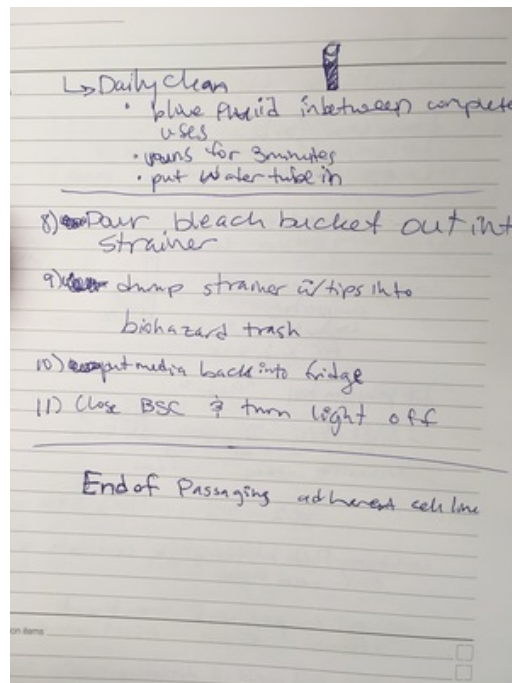 ↳ Daily clean
• blue fluid inbetween complete
uses
• runs for 3 minutes
• put water tube in
8) Pour bleach bucket out int
strainer
9) dump strainer w/tips into
biohazard trash
10) put media back into fridge
11) Close BSC & turn light off
End of Passaging adherent cell line
on items